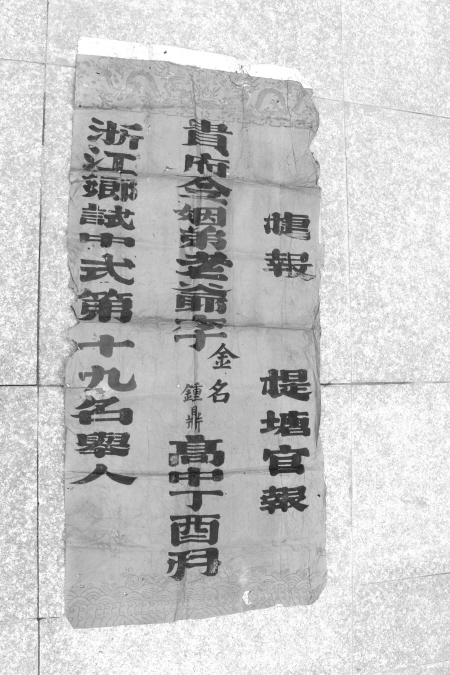 捷報 提塘官報
貴府令姻弟老爺李
金名
鍾鼎
高中丁酉科
浙江鄉試中式第十九名舉人